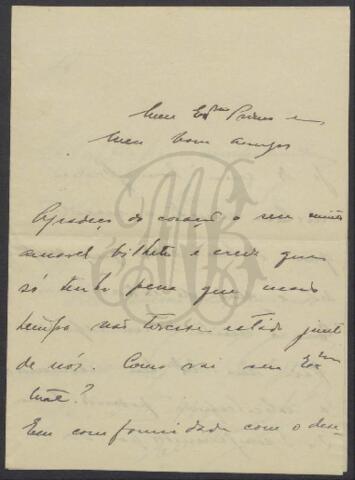 Meu Exmo Primo e
meu bom amigo
Agradeço do coração o seu muito
amavel bilhete e creia que
só tenho pena que mais
tempo não estado junto
de nós. Como vai seu Exmo
Em conformidade com o dese-